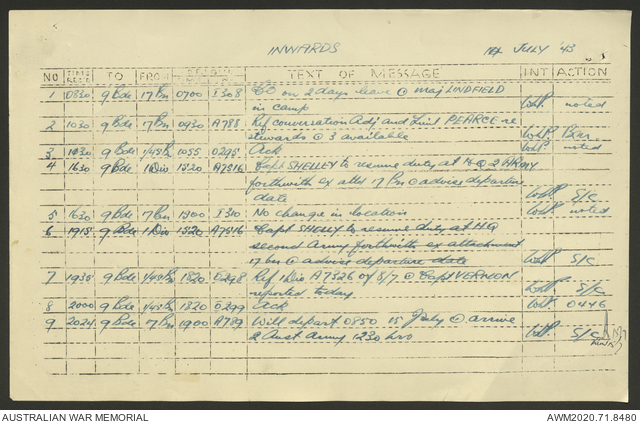 INWARDS 14 JULY '43
NO TIME RECD TO FROM ORIGIN TEXT OF MESSAGE INT ACTION
1 0830 9 Bde 17 Bn 0700 I308 CO on 2 days leave @ Maj LINDFIELD
in camp WHP noted
2 1030 9 Bde 17 Bn 0930 A788 Ref conversation Adj and Lieut PEARCE re
stewards @ 3 available WHP Bar
3 1130 9 Bde 1/45 Bn 1055 0295 Ack WHP noted
4 1630 9 Bde 1 Div 1520 A7516 Capt SHELLEY to resume duty at HQ 2 ARMY
forthwith ex attd 17 Bn @ advise departure
date WHP S/C
5 1630 9 Bde 17 Bn 1900 I310 No change in location WHP noted
6 1915 9 Bde 1 Div 1520 A7516 Capt SHELLY to resume duty at HQ
second Army forthwith ex attachment
17 bn @ advise departure date WHP S/C
7 1935 9 Bde 1/45 Bn 1820 0298 Ref 1 Div A7326 of 8/7 @ Capt VERNON
reported today. WHP S/C
8 2000 9 Bde 1/45 Bn 1820 0299 Ack WHP 0446
9 2024 9 Bde 17 Bn 1900 A789 Will depart 0850 15 July @ arrive
2 Aust Army 1230 hrs WHP S/C
AUSTRALIAN WAR MEMORIAL AWM2020.71.8480